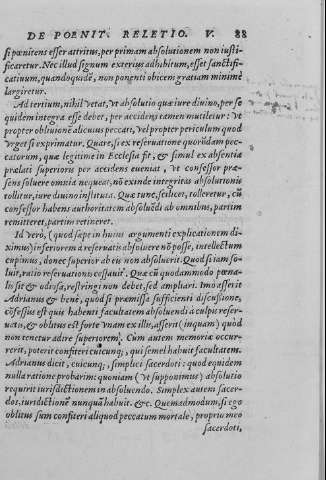 DE POENIT. RELETIO. V. 88
si pœnitens esset attritus, per primam absolutionem non iusti-
ficaretur. Nec illud signum exterius adhibitum, esset sanctifi-
catiuum, quandoquidē, non ponenti obicem gratiam minimè
largiretur.
Ad tertium, nihil vetat, vt absolutio quæ iure diuino, per se
quidem integra esse debet, per accidens tamen mutiletur: vt
propter obliuionē alicuius peccati, vel propter periculum quod
vrget si exprimatur. Quare, si ex reseruatione quorūdam pec-
catorum, quæ legitime in Ecclesia fit, & simul ex absentia
prælati superioris per accidens eueniat, vt confessor præ-
sens soluere omnia nequeat, nō exinde integritas absolutionis
tollitur, iure diuino instituta. Quæ tunc, scilicet, tolleretur, cū
confessor habens authoritatem absoluēdi ab omnibus, partim
remitteret, partim retineret.
Id verò, (quod sæpe in huius argumenti explicationem di-
ximus) inferiorem à reseruatis absoluere nō posse, intellectum
cupimus, donec superior ab eis non absoluerit. Quod si tam so-
luit, ratio reseruationis cessauit. Quæ cū quodammodo pœna-
lis sit & odiosa, restringi non debet, sed ampliari. Imò asserit
Adrianus & benè, quod si præmissa sufficienti discussione,
cōfessus est quis habenti facultatem absoluendi à culpis reser-
uatis, & oblitus est forte vnam ex illis, asserit (inquam) quod
non tenetur adire superiorem. Cum autem memoria occur-
rerit, poterit confiteri cuicunq;, qui semel habuit facultatem.
Adrianus dicit, cuicunq;, simplici sacerdoti: quod equidem
nulla ratione probarim: quoniam (vt supponimus) absolutio
requirit iurisdictionem in absoluendo. Simplex autem sacer-
dos, iurisdictionē nunquā habuit. &c. Quemadmodum, si ego
oblitus sum confiteri aliquod peccatum mortale, proprio meo
sacerdoti,